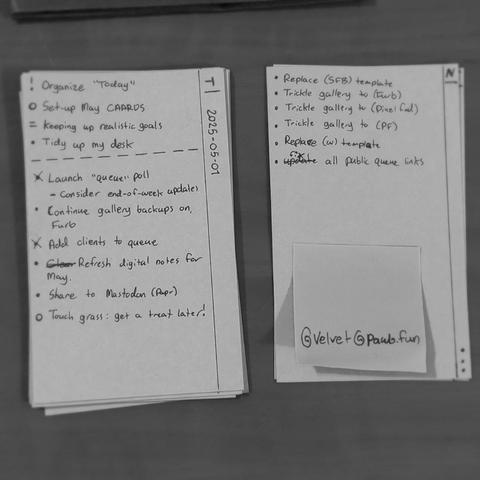 ! Organize "Today"
o Set-up May CARRDS
= Keeping up realistic goals
• Tidy up my desk
x Launch "queue" poll
- Consider end-of-week updates
• Continue gallery backups on,
Furb
x Add clients to queue
• Clear Refresh digital notes for
May.
• Share to Mastodon (Repr)
o Touch grass: get a treat later!
T
2025-05-01
• Replace (SFB) template
• Trickle gallery to (Furb)
• Trickle gallery to (Pixelfed)
• Trickle gallery to (PF)
• Replace (w) template
• update all public queue links
N
@Velvet@pawb.fun